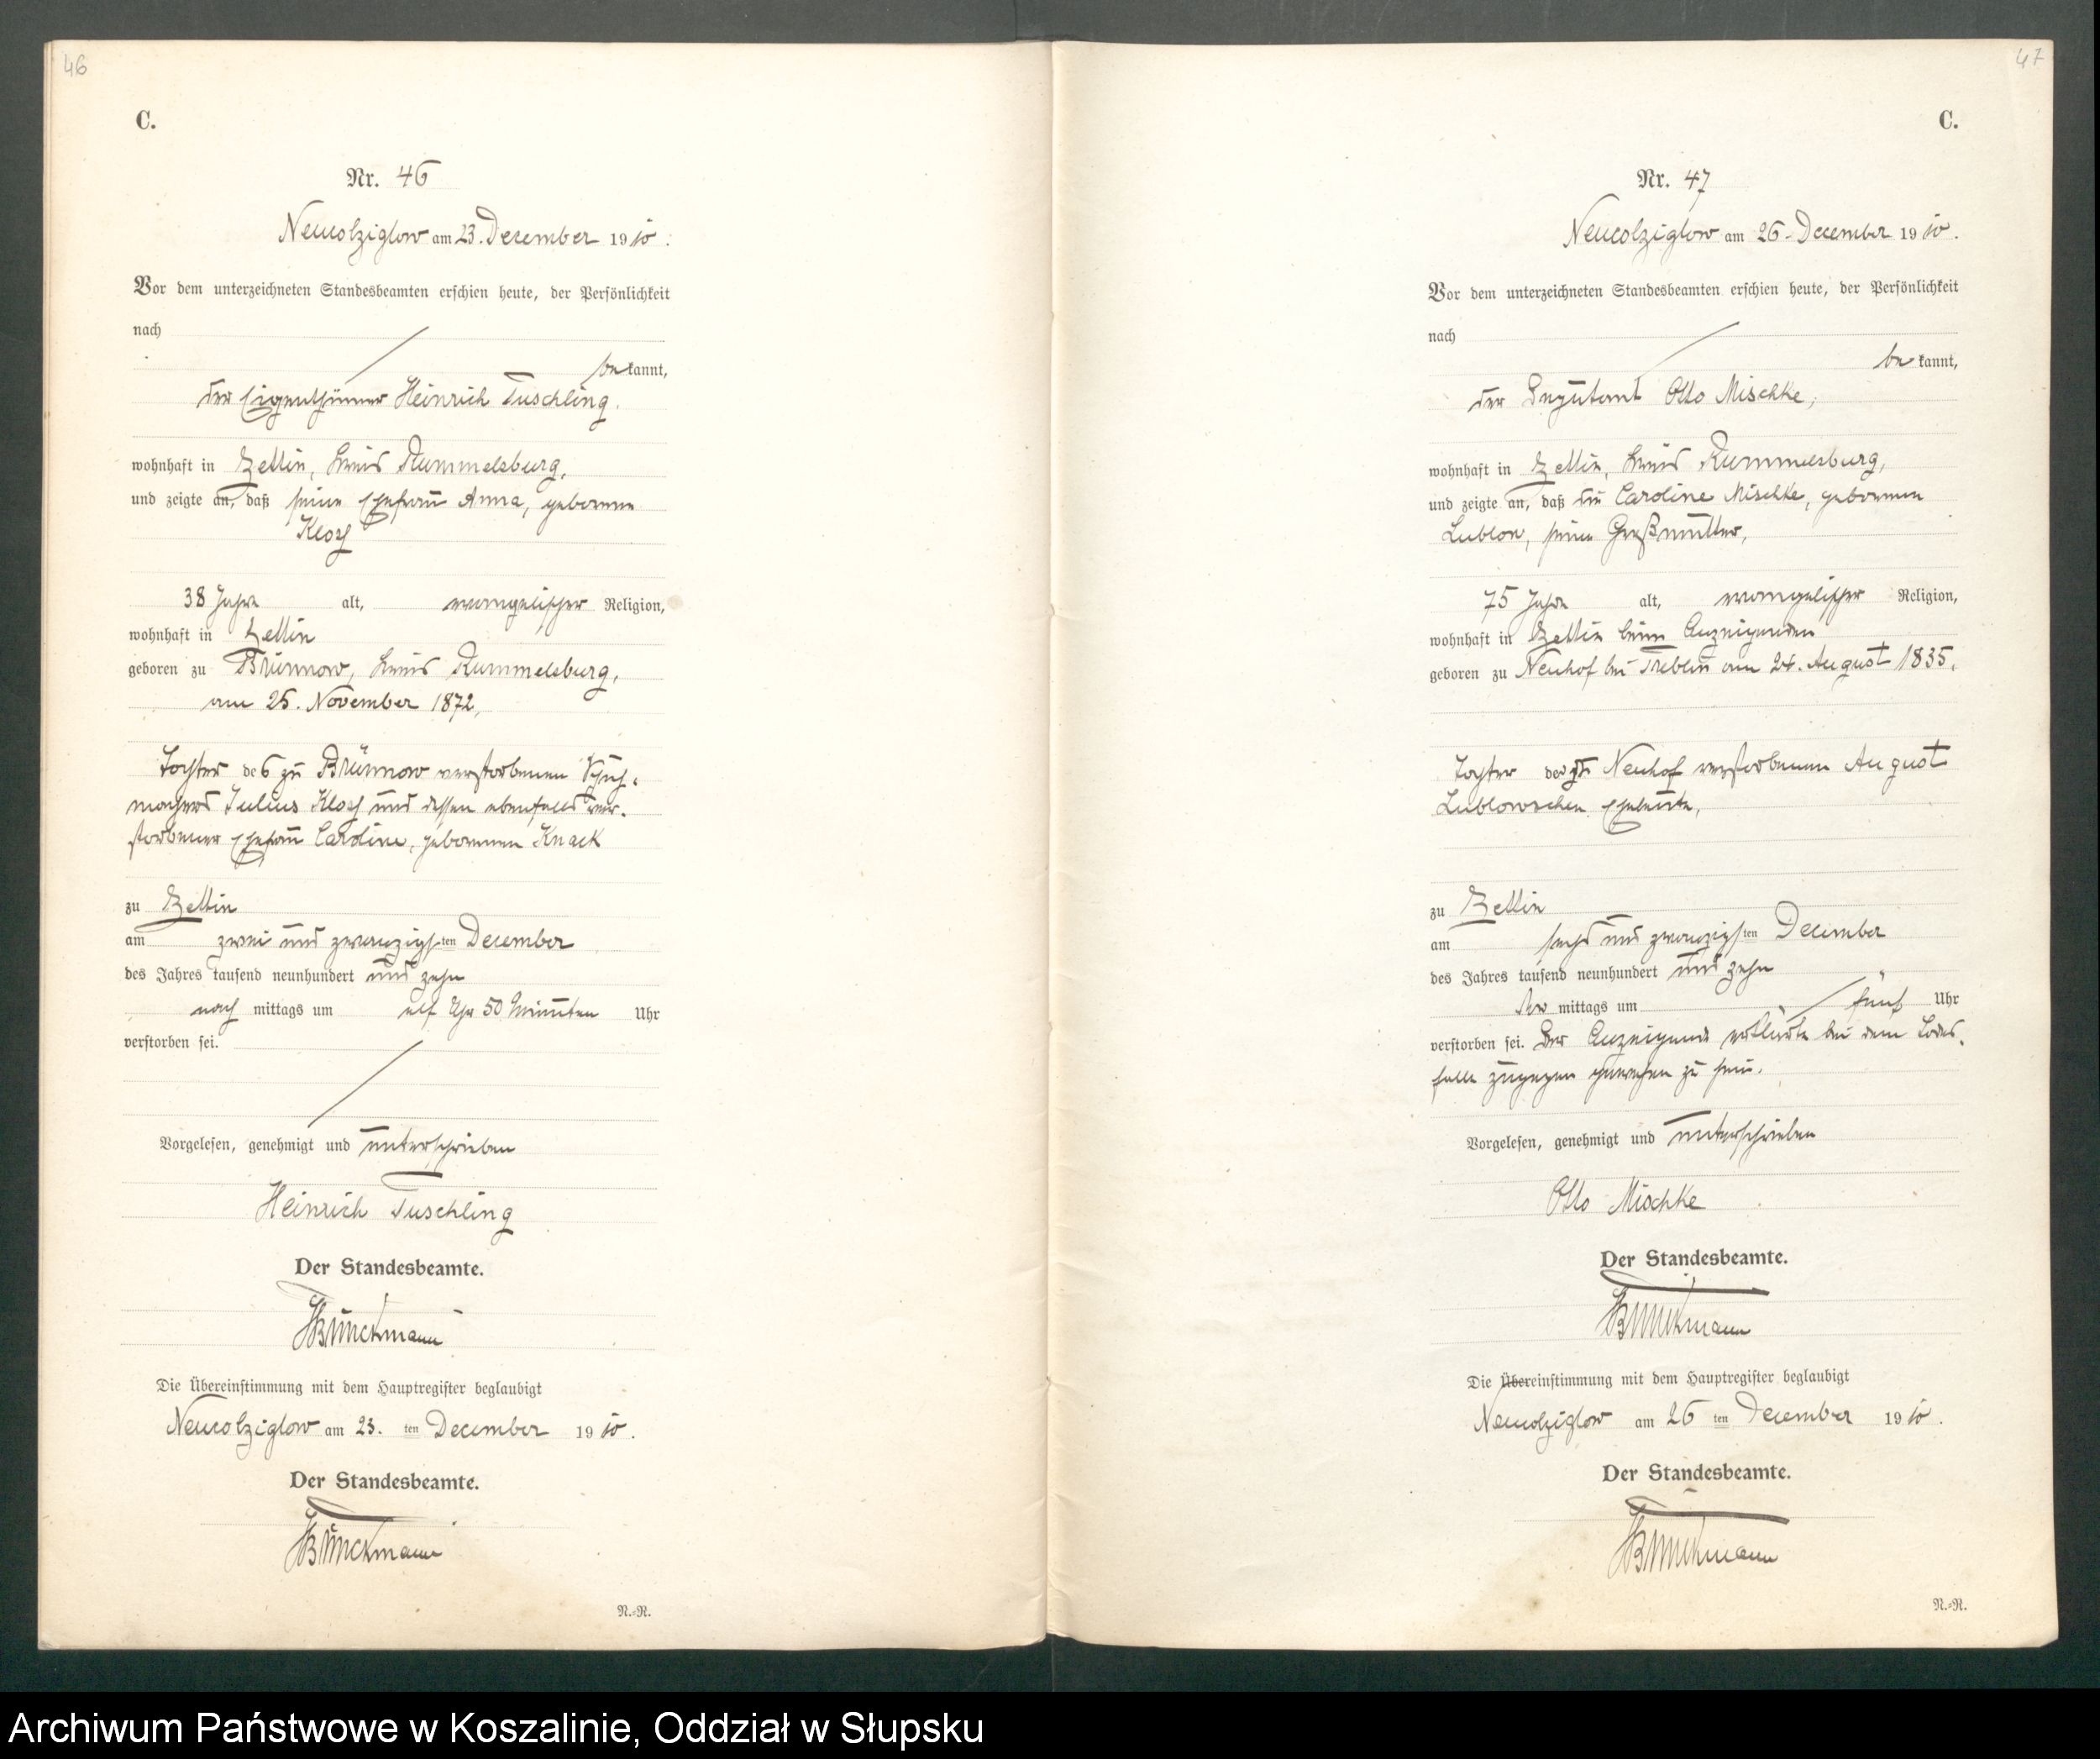 46
C.
Nr. 46
Neukolziglow am 23. Dezember 1910.
Vor dem unterzeichneten Standesbeamten erschien heute, der Persönlichkeit
nach
bekannt,
der Eigenthümer Heinrich Tuschling.
wohnhaft in Zettin, Kreis Rummelsburg,
und zeigte an, daß seine Ehefrau Anna, geborene
38 Jahre alt, evangelischer Religion,
wohnhaft in Zettin
geboren zu Brünnow, Kreis Rummelsburg,
am 25. November 1872,
Tochter des zu Brünnow verstorbenen Schuh-
machers Julius und dessen ebenfalls ver-
storbener Ehefrau Caroline, geborenen Knack
zu Zettin
am zwei und zwanzigsten Dezember
des Jahres tausend neunhundert und zehn
nach mittags um elf Uhr 50 Minuten Uhr
verstorben sei.
Vorgelesen, genehmigt und unterschrieben
Heinrich Tuschling
Der Standesbeamte.
Die Übereinstimmung mit dem Hauptregister beglaubigt
Neukolziglow am 23. ten December 1910.
Der Standesbeamte.
N.=N.
47
C.
Nr. 47
Neukolziglow am 26. December 1910.
Vor dem unterzeichneten Standesbeamten erschien heute, der Persönlichkeit
nach
bekannt,
der Deputant Otto Mischke,
wohnhaft in Zettin, Kreis Rummelsburg,
und zeigte an, daß die Caroline Mischke, geborenen
Lublow, seine Großmutter,
75 Jahre alt, evangelischer Religion,
wohnhaft in Zettin beim Anzeigenden
geboren zu Neuhof bei Treblin am August 1835,
Tochter der zu Neuhof verstorbenen August
Lublowschen Eheleute,
zu Zettin
am sechs und zwanzigsten December
des Jahres tausend neunhundert und zehn
Vor mittags um fünf Uhr
verstorben sei. Der Anzeigende erklärte bei dem Todes-
falle zugegen gewesen zu sein.
Vorgelesen, genehmigt und unterschrieben
Otto Mischke
Der Standesbeamte.
Die Übereinstimmung mit dem Hauptregister beglaubigt
Neukolziglow am 26 ten December 1910.
Der Standesbeamte.
N.=N.
Archiwum Państwowe w Koszalinie, Oddział w Słupsku